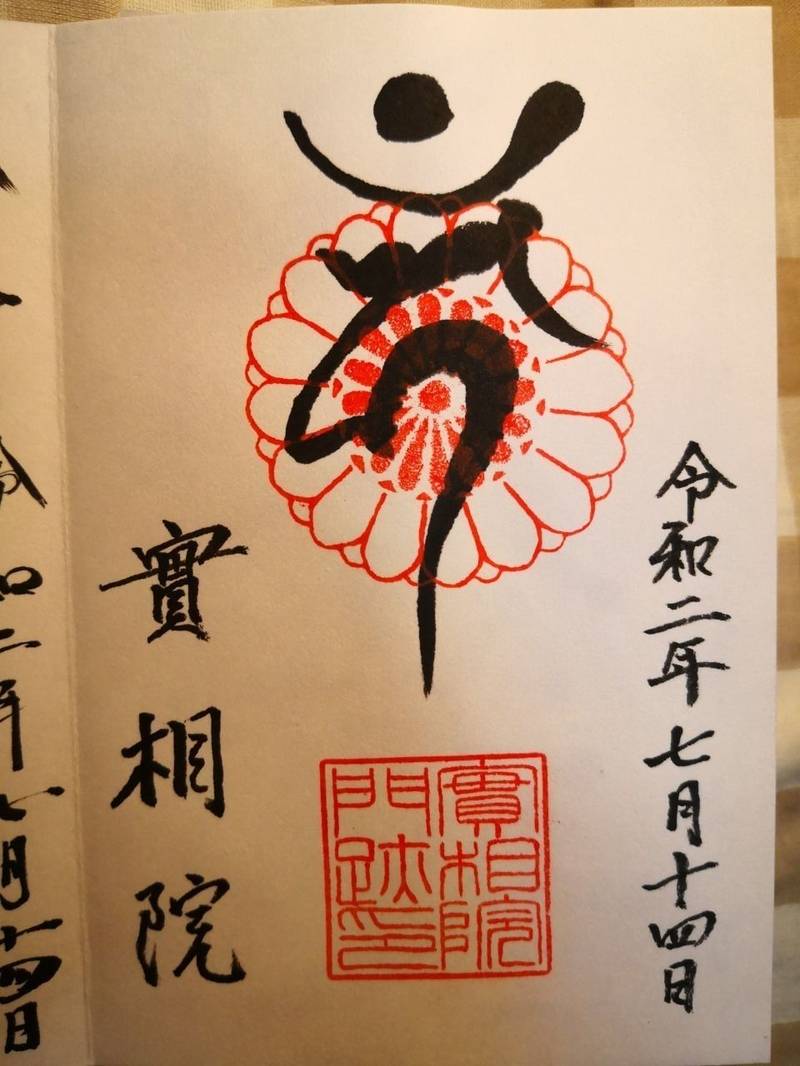 令和二年七月十四日
實相院
門跡印
實相院
令和二年七月十四日